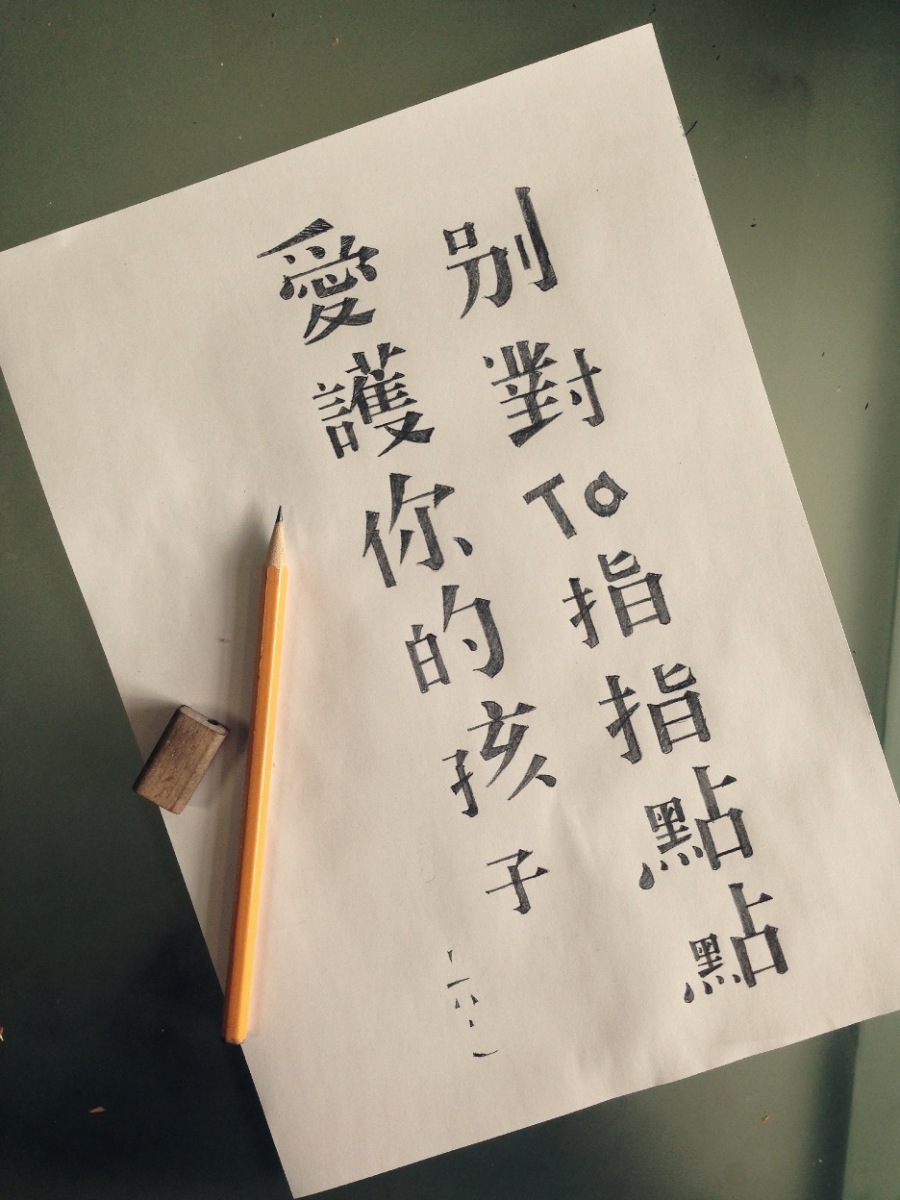 别對Ta指指點點
愛護你的孩子